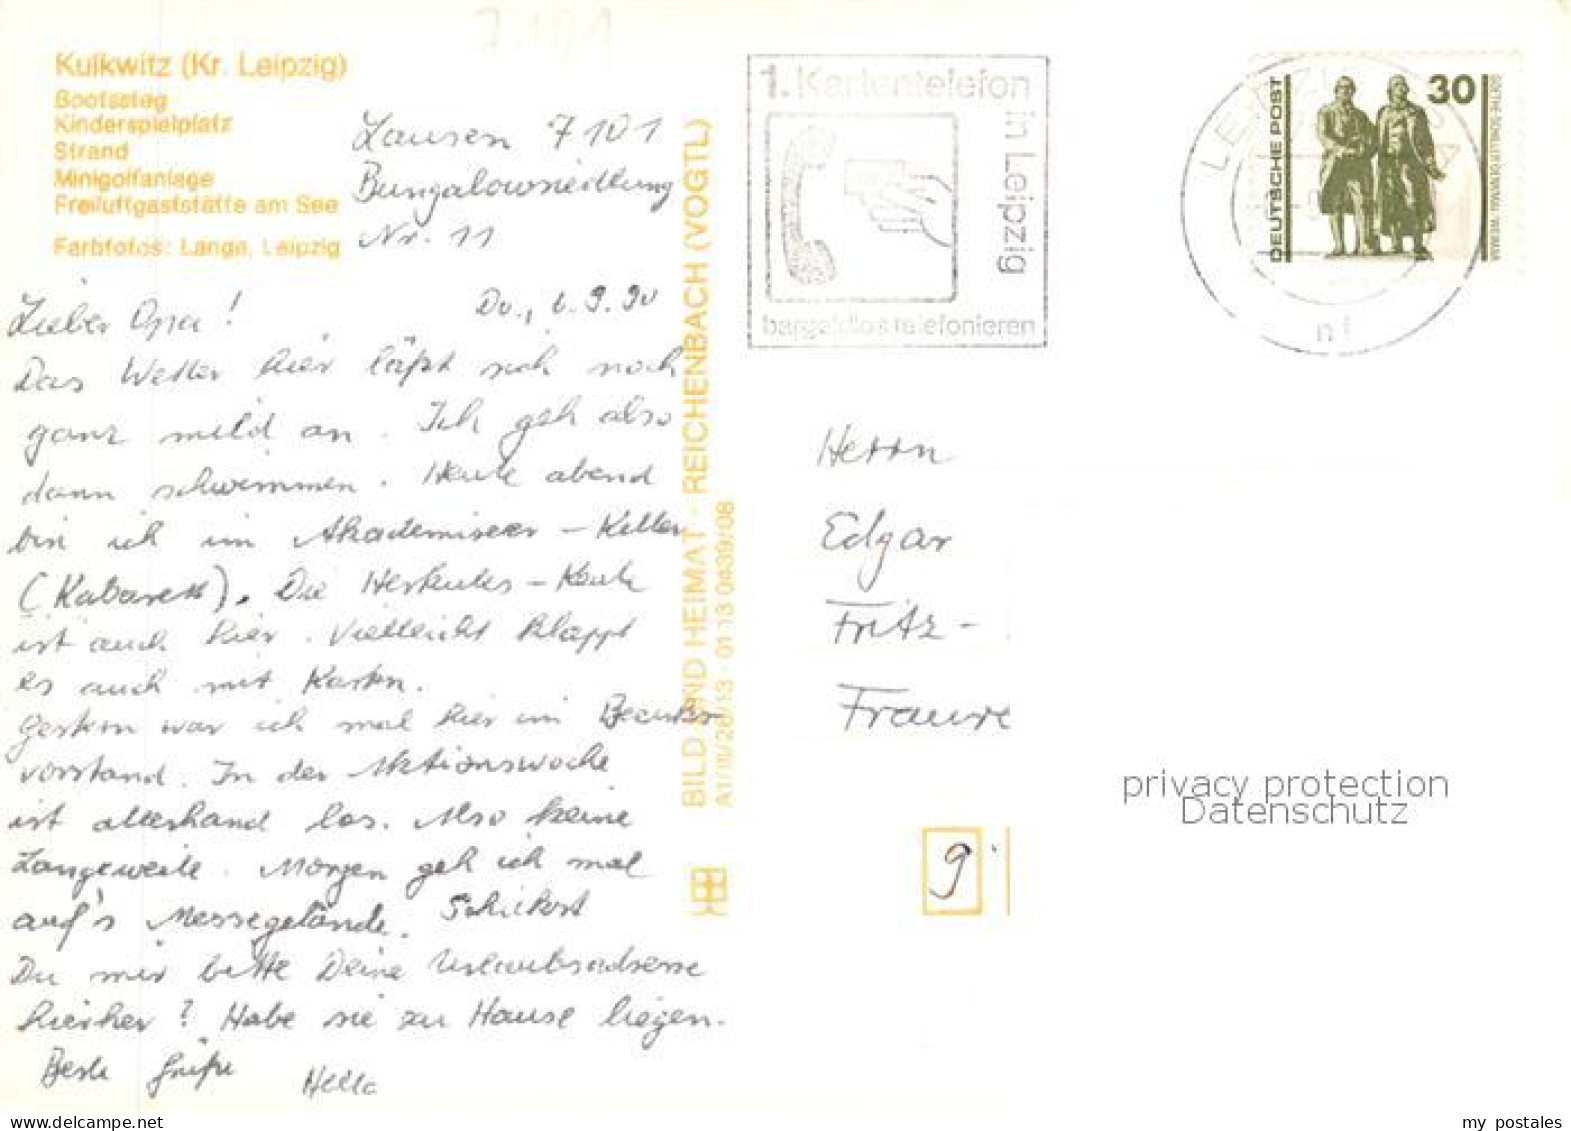 7101
Kulkwitz (Kr. Leipzig)
Bootssteg
Kinderspielplatz
Strand
Minigolfanlage
Freiluftgaststätte am See
Farbfotos: Lange, Leipzig
Lausen 7101
Bungalowsiedlung
Nr. 11
Do., 6.9.90
Lieber Opa!
Das Wetter hier läßt sich noch
ganz mild an. Ich geh also
dann schwimmen. Heute abend
bin ich im Akademixer-Keller
(Kabarett). Die Herkules-Keule
ist auch hier. Vielleicht klappt
es auch mit Karten.
Gestern war ich mal hier im Bezirks-
vorstand. In der Aktionswoche
ist allerhand los. Also keine
Langeweile. Morgen geh ich mal
auf's Messegelände. Schickst
Du mir bitte Deine Urlaubsadresse
hierher? Habe sie zu Hause liegen.
Beste Grüße
Hella
BILD UND HEIMAT · REICHENBACH (VOGTL)
A1/III/26/13 · 01 13 0439/08
1. Kartentelefon
in Leipzig
bargeldlos telefonieren
LEIPZIG
nf
DEUTSCHE POST
30
GOETHE-SCHILLER-DENKMAL · WEIMAR
Herrn
Edgar
Fritz-
9
privacy protection
Datenschutz
my postales